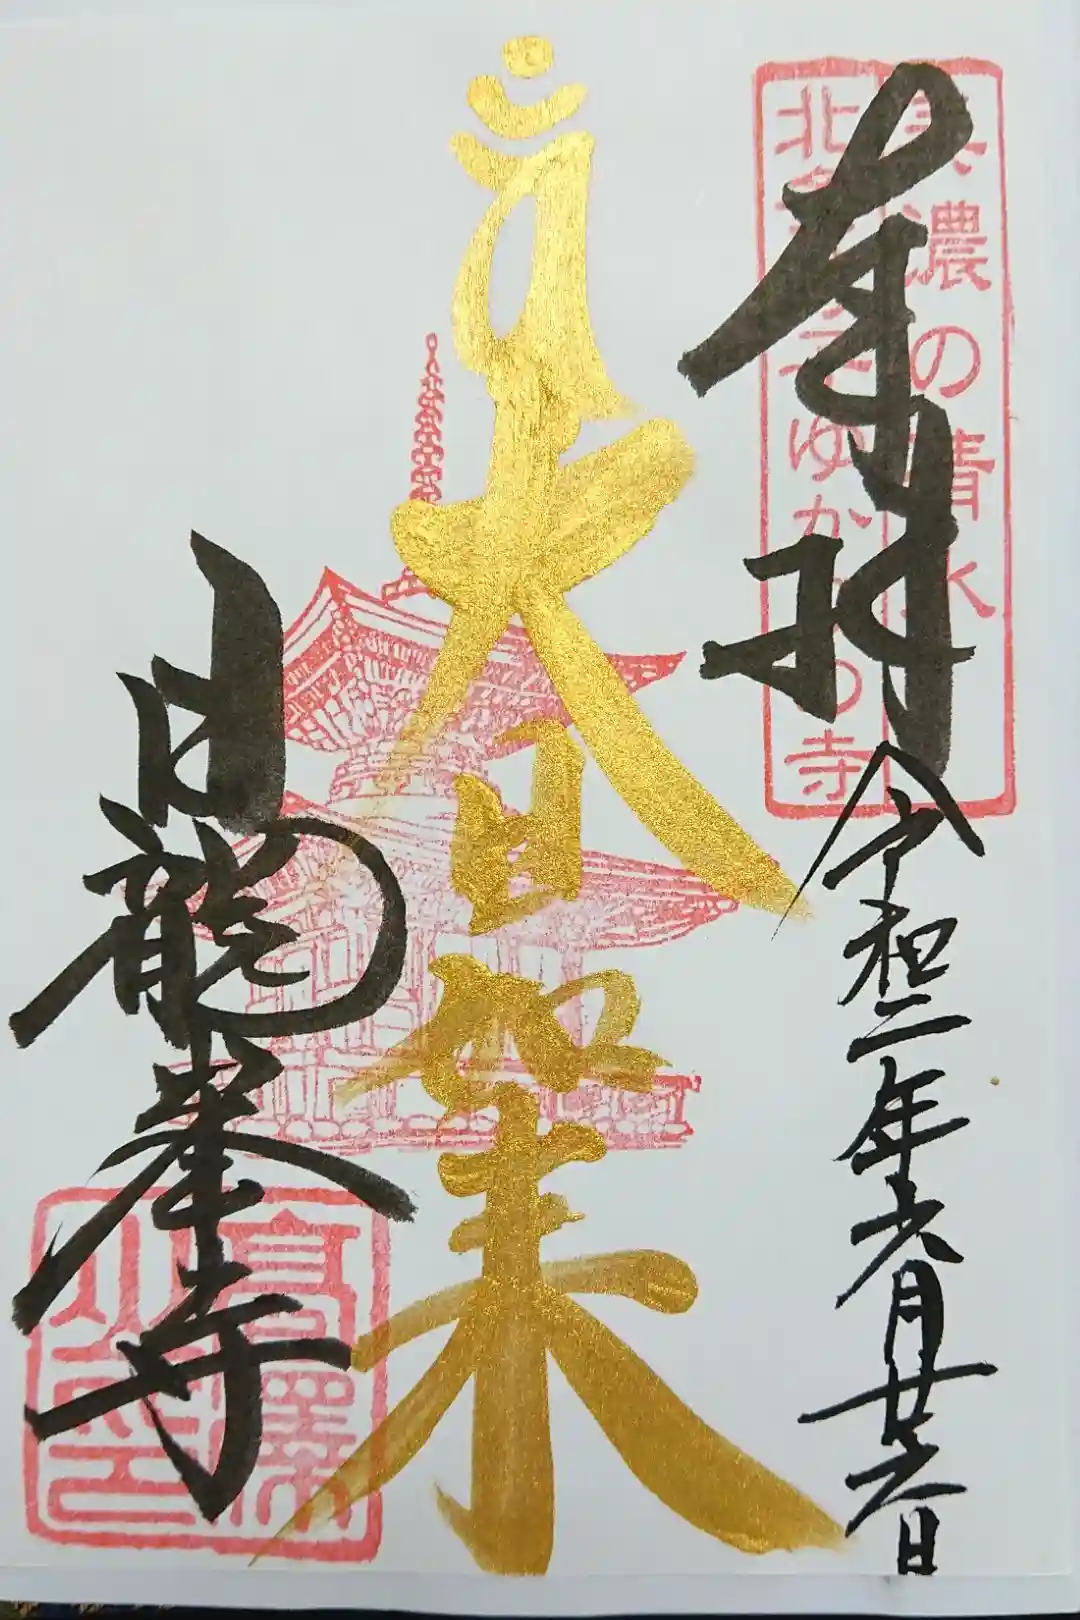 奉拝
令和二年六月廿六日
美濃の清水
北条政子ゆかりの寺
大日如来
日龍峯寺
高澤
山印